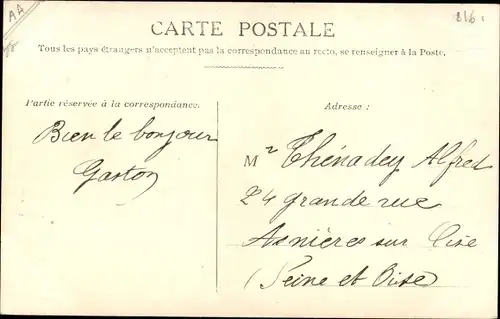 AA
216
CARTE POSTALE
Tous les pays étrangers n'acceptent pas la correspondance au recto, se renseigner à la Poste.
Partie réservée à la correspondance.
Adresse :
Bien le bonjour
Gaston
Mr Thénadey Alfred
24 grande rue
Asnières sur Oise
(Seine et Oise)